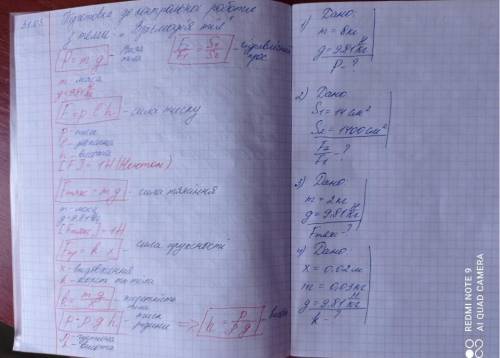 31.03.
Підготовка до контрольної роботи
з теми: „ Взаємодія тіл"
P = m g - Вага тіла
F₂/F₁ = S₂/S₁ - гідравлічний прес
m - маса
g = 9.81
- сила тиску
h - висота
[F] = 1Н (Ньютон)
Fтяж = mg - сила тяжіння
m - маса
g = 9.81
[Fтяж] = 1Н
Fпр = k · x - сила пружності
x - видовження
k = mg/x
p = ρgh - тиск рідини => h = p/ρg - висота
h - висота
1) Дано:
m = 8кг
g = 9.81 Н/кг
P - ?
2) Дано
S₁ = 14 см²
S₂ = 1400 см²
F₂/F₁ - ?
3) Дано
m = 2кг
g = 9.81 Н/кг
Fтяж - ?
4) Дано
x = 0.02м
m = 0.05кг
g = 9.81 Н/кг
k - ?
REDMI NOTE 9
AI QUAD CAMERA